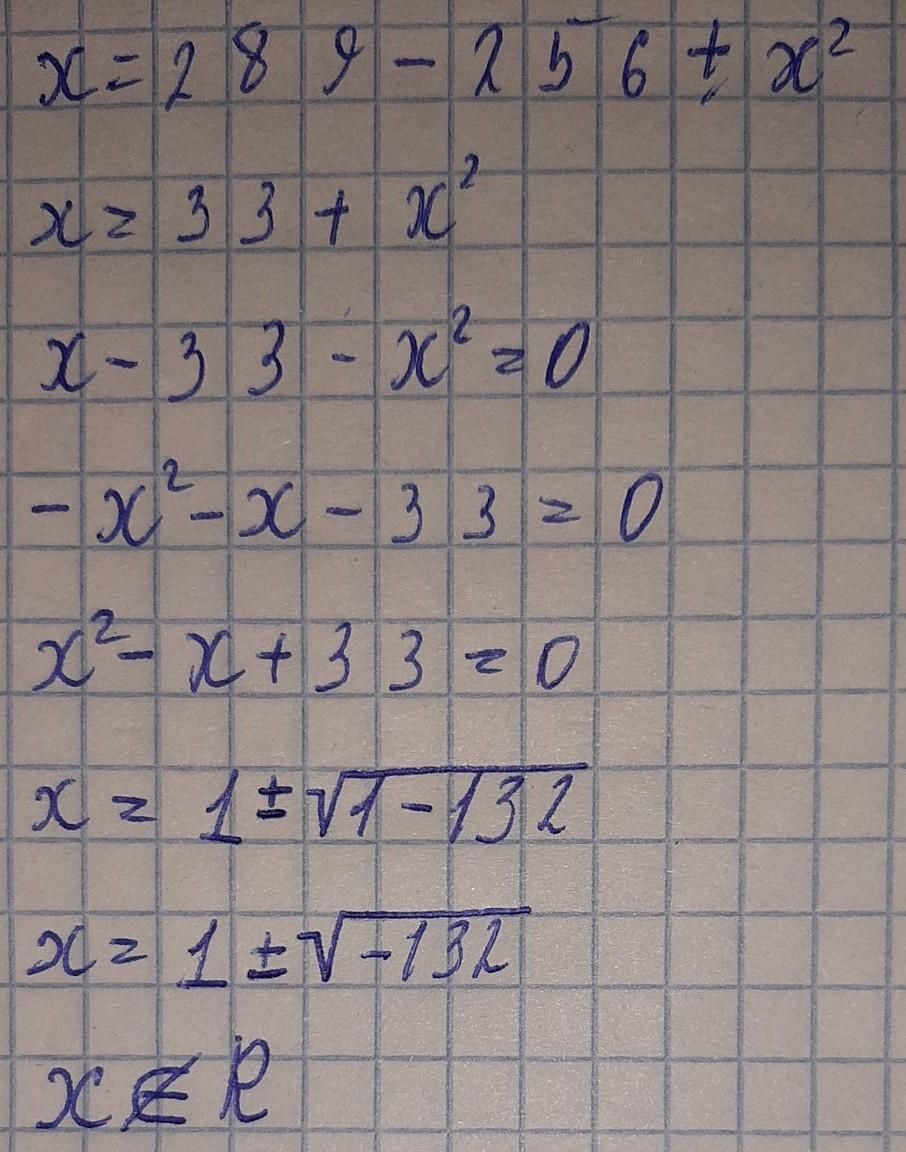 x = 289 - 256 + x²
x = 33 + x²
x - 33 - x² = 0
- x² - x - 33 = 0
x² - x + 33 = 0
x = 1 ± √(1 - 132)
x = 1 ± √(-132)
x ∉ R